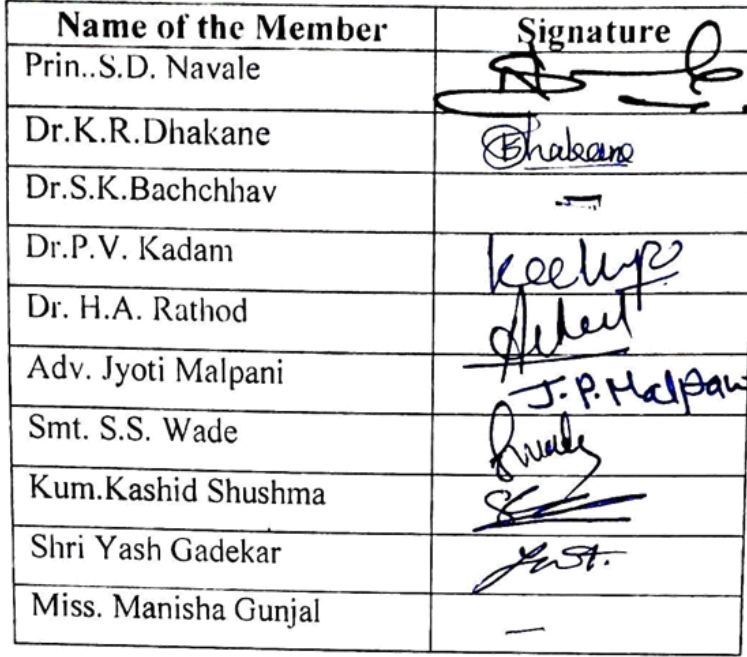 Name of the Member Signature
Prin..S.D. Navale
Dr.K.R.Dhakane Dhakane
Dr.S.K.Bachchhav —
Dr.P.V. Kadam
Dr. H.A. Rathod
Adv. Jyoti Malpani J.P.Malpani
Smt. S.S. Wade
Kum.Kashid Shushma
Shri Yash Gadekar
Miss. Manisha Gunjal —